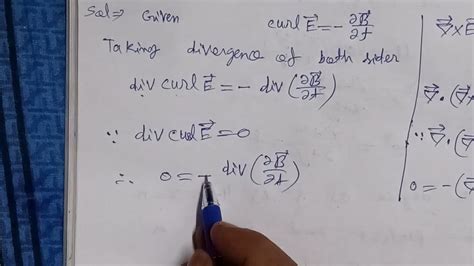 Sol⇒ Given curl E⃗ = - ∂B⃗/∂t
Taking divergence of both sider
div curl E⃗ = - div (∂B⃗/∂t)
∵ div curl E⃗ = 0
∴ 0 = - div (∂B⃗/∂t)
∇⃗×E
∇⃗.(
∵ ∇⃗.(
0 = -(∇⃗